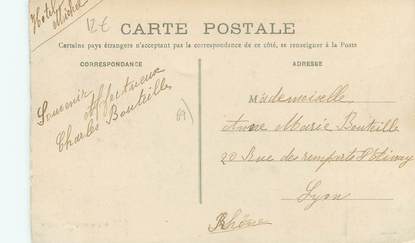 Hôtel
Michel
12 €
CARTE POSTALE
Certains pays étrangers n'acceptent pas la correspondance de ce côté, se renseigner à la Poste
CORRESPONDANCE
ADRESSE
Souvenir
Affectueux
Charles Bouteille
69
Mademoiselle
Anne Marie Bouteille
20 Rue des remparts d'Ainay
Lyon
Rhône